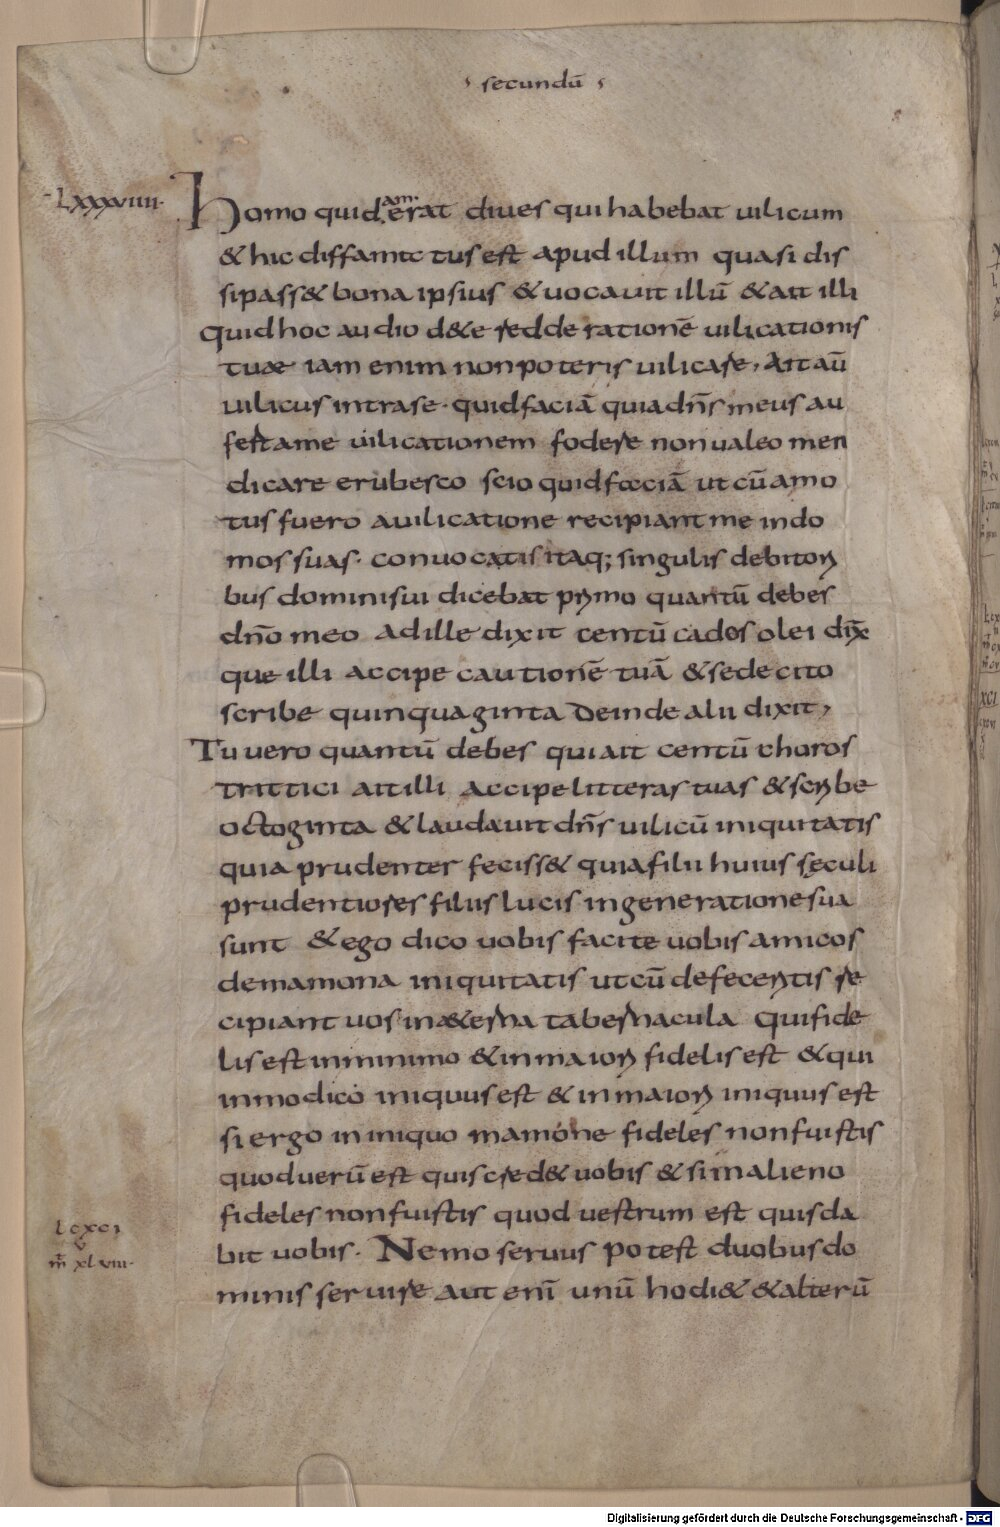 secundū
LXXXVIIII
Homo quidam erat diues qui habebat uilicum
& hic diffamatus est apud illum quasi dis
sipass& bona ipsius & uocauit illū & ait illi
Quid hoc audio d&e redde rationē uilicationis
tuae iam enim non poteris uilicare, Ait aū
uilicus intra se · quid faciā quia dn̄s meus au
fert a me uilicationem fodere non ualeo men
dicare erubesco scio quid faciā ut cū amo
tus fuero a uilicatione recipiant me in do
mos suas · conuocatis itaq; singulis debitori
bus domini sui dicebat primo quantū debes
dn̄o meo Ad ille dixit centū cados olei dix̄
que illi Accipe cautionē tuā & sede cito
scribe quinquaginta Deinde alii dixit,
Tu uero quantū debes qui ait centū choros
trittici ait illi Accipe litteras tuas & scribe
octoginta & laudauit dn̄s uilicū iniquitatis
quia prudenter feciss& quia filii huius sęculi
prudentiores filiis lucis in generatione sua
sunt & ego dico uobis facite uobis amicos
de mamona iniquitatis ut cū defeceritis re
cipiant uos in æ&erna tabernacula Qui fide
lis est in minimo & in maiori fidelis est & qui
in modico iniquus est & in maiori iniquus est
si ergo in iniquo mamone fideles non fuistis
quod uerū est quis cred& uobis & si in alieno
fideles non fuistis quod uestrum est quis da
bit uobis · Nemo seruus potest duobus do
LCXCI
V
m̄ xlviii ·
minis seruire aut enī unū hodi& & alterū
Digitalisierung gefördert durch die Deutsche Forschungsgemeinschaft - DFG